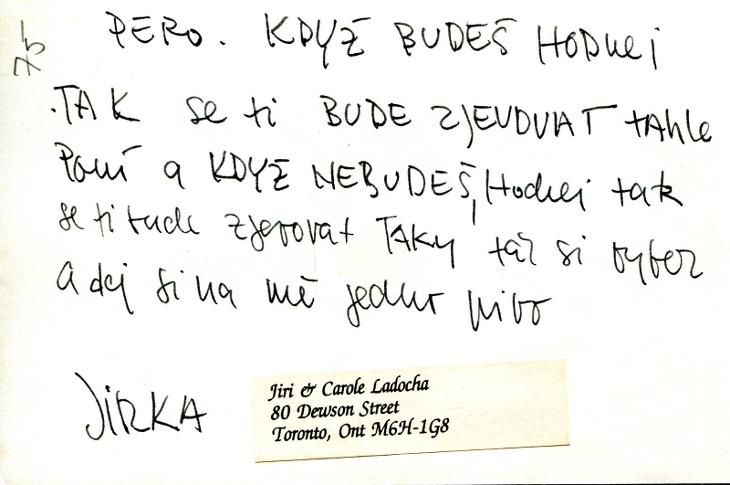 75
PERO. KDYŽ BUDEŠ HODNEJ
.TAK se ti BUDE ZJEVOVAT tAhle
Paní a KDYŽ NEBUDEŠ, Hodnej tak
se ti bude zjevovat TAKY taž si vyber
A dej si na mě jedno pivo
JiRKA
Jiri & Carole Ladocha
80 Dewson Street
Toronto, Ont M6H-1G8